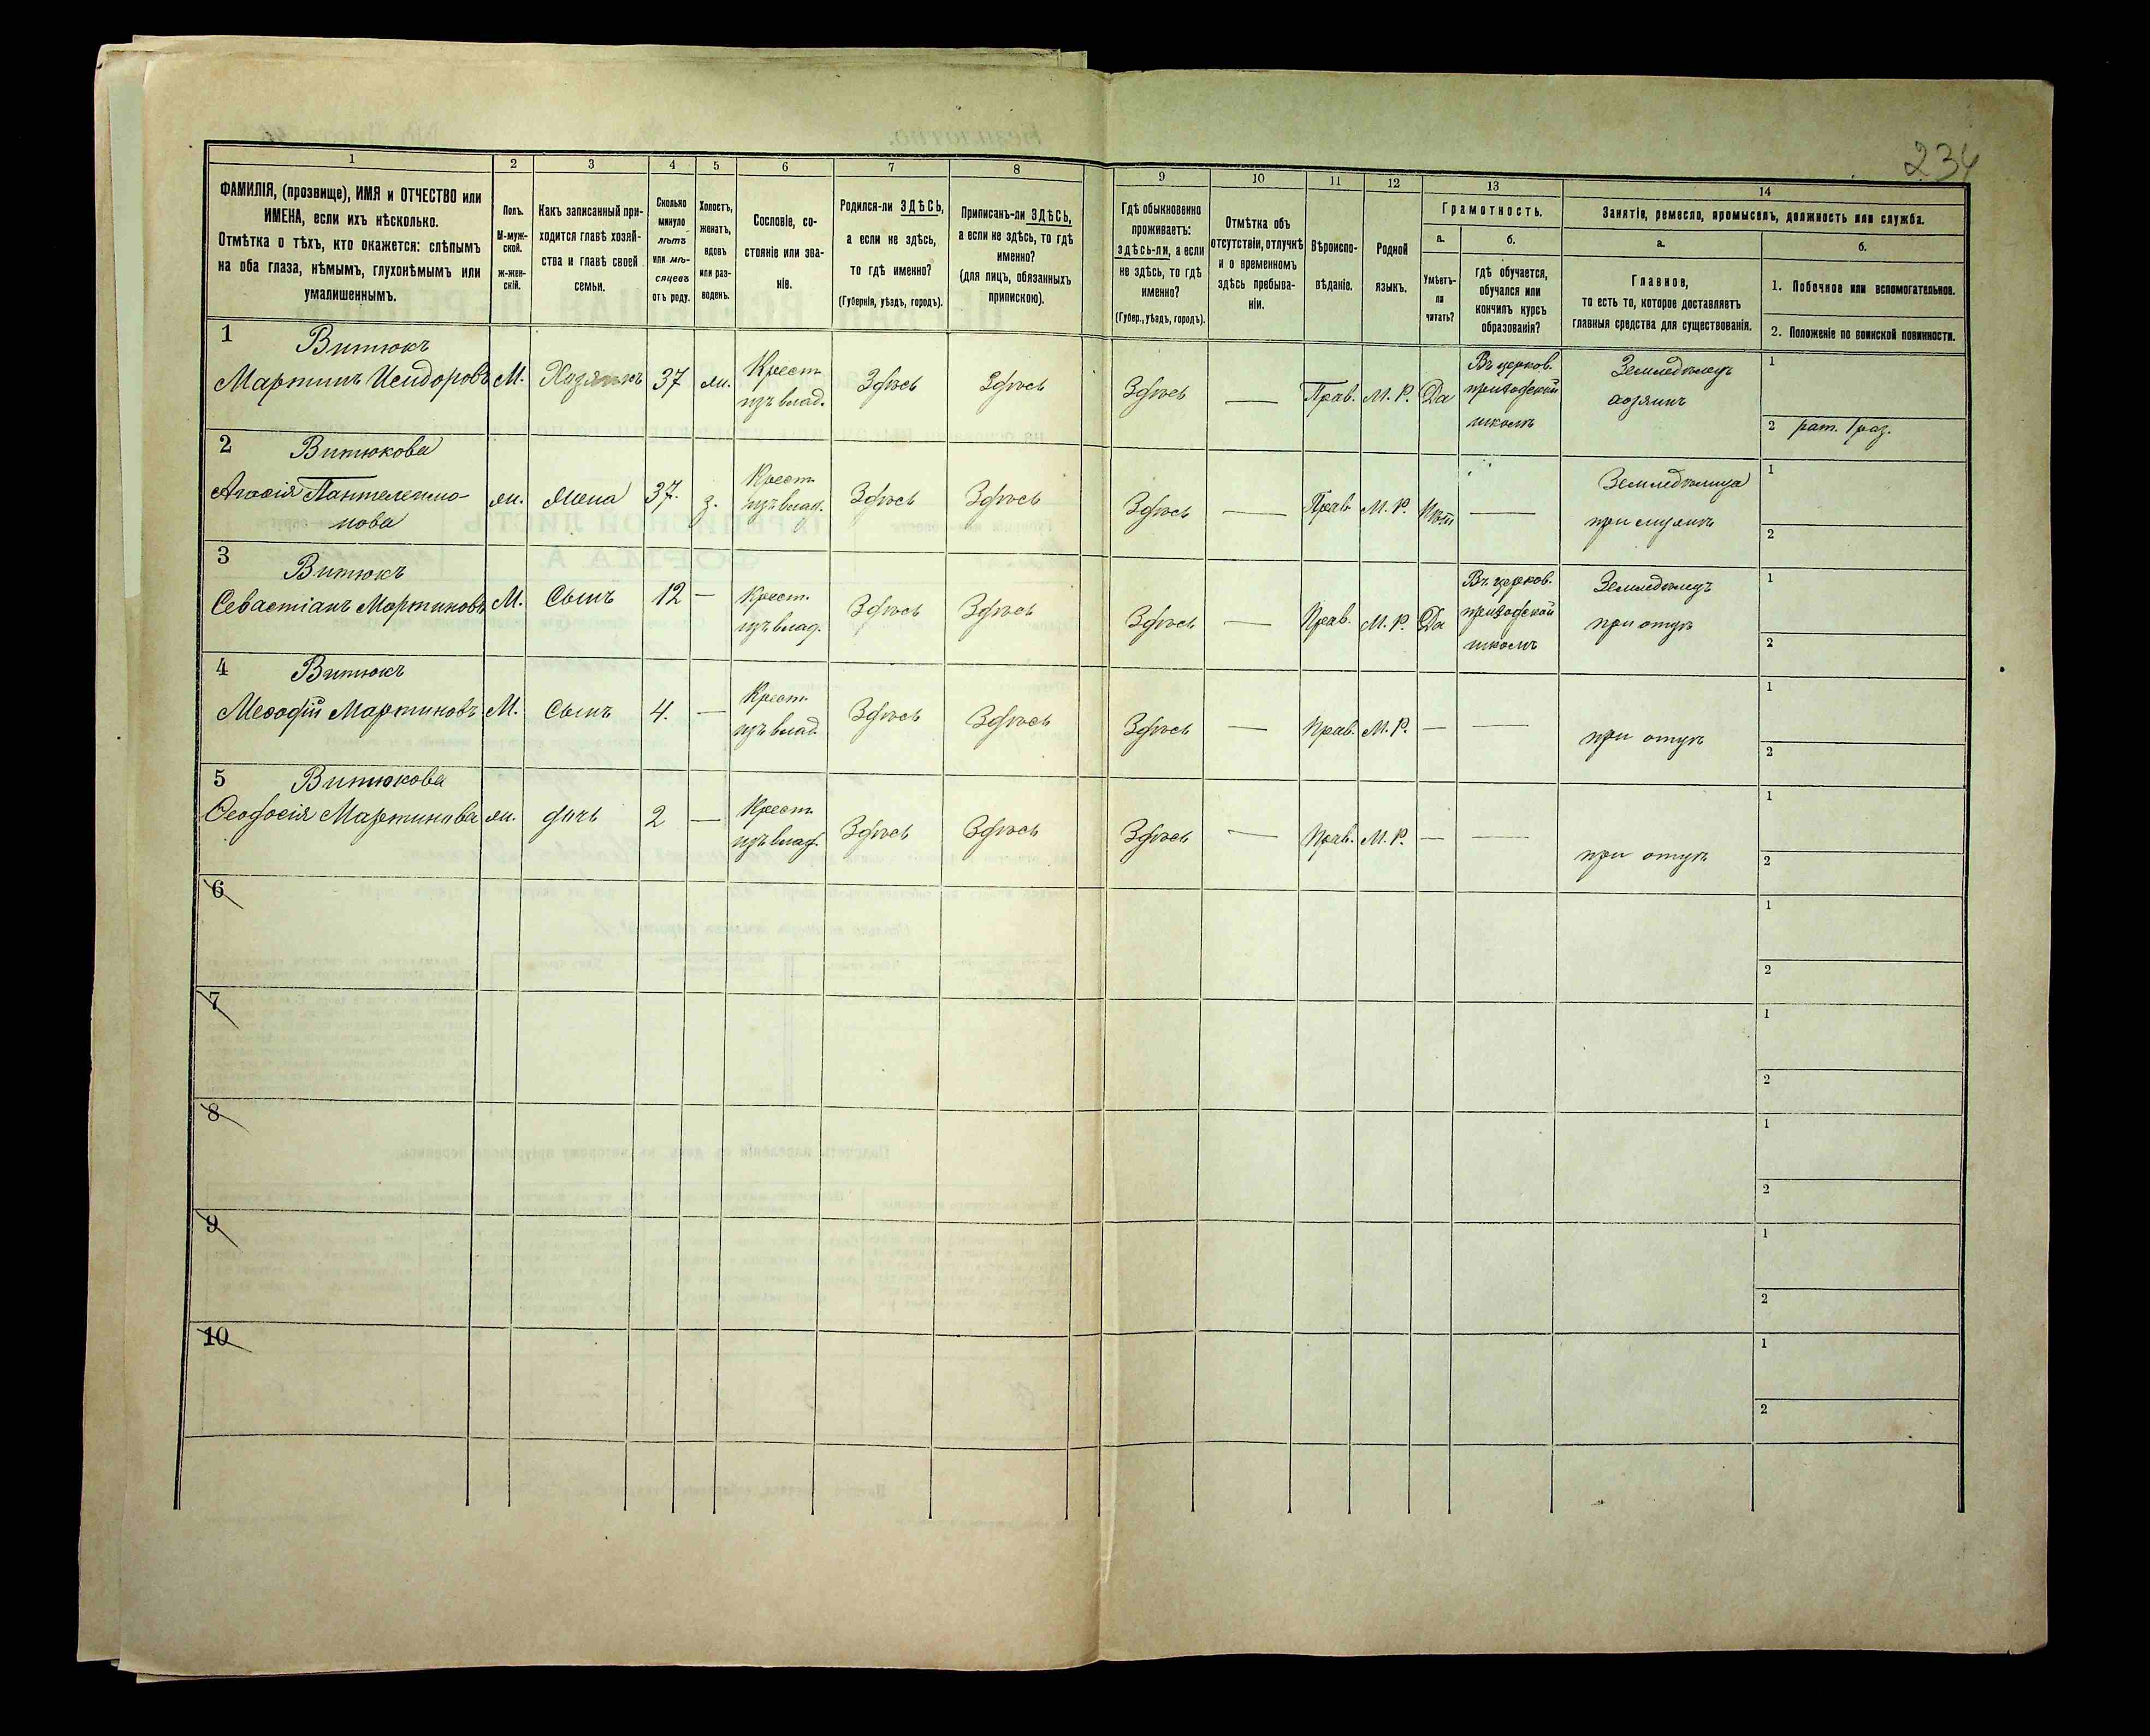 234
1 2 3 4 5 6 7 8 9 10 11 12 13 14
ФАМИЛІЯ, (прозвище), ИМЯ и ОТЧЕСТВО или
ИМЕНА, если ихъ нѣсколько.
Отмѣтка о тѣхъ, кто окажется: слѣпымъ
на оба глаза, нѣмымъ, глухонѣмымъ или
умалишеннымъ.
Полъ.
М-муж-
ской.
ж-жен-
скій.
Какъ записанный при-
ходится главѣ хозяй-
ства и главѣ своей
семьи.
Сколько
минуло
лѣтъ
или мѣ-
сяцевъ
отъ роду.
Холостъ,
женатъ,
вдовъ
или раз-
веденъ.
Сословіе, со-
стояніе или зва-
ніе.
Родился-ли ЗДѢСЬ,
а если не здѣсь,
то гдѣ именно?
(Губернія, уѣздъ, городъ).
Приписанъ-ли ЗДѢСЬ,
а если не здѣсь, то гдѣ
именно?
(для лицъ, обязанныхъ
припискою).
Гдѣ обыкновенно
проживаетъ:
здѣсь-ли, а если
не здѣсь, то гдѣ
именно?
(Губер., уѣздъ, городъ).
Отмѣтка объ
отсутствіи, отлучкѣ
и о временномъ
здѣсь пребыва-
ніи.
Вѣроиспо-
вѣданіе.
Родной
языкъ.
Грамотность.
а.
Умѣетъ-
ли
читать?
б.
гдѣ обучается,
обучался или
кончилъ курсъ
образованія?
Занятіе, ремесло, промыселъ, должность или служба.
а.
Главное,
то есть то, которое доставляетъ
главныя средства для существованія.
б.
1. Побочное или вспомогательное.
2. Положеніе по воинской повинности.
1 Витюкъ
Мартинъ Исидоровъ
М.
Хозяинъ
37
ж.
Крест.
изъ влад.
Здѣсь
Здѣсь
Здѣсь
—
Прав.
М. Р.
Да
Въ церков.
приходской
школѣ
Земледѣлецъ
хозяинъ
1
2 рат. 1 раз.
2 Витюкова
Агафія Пантелеимо-
нова
ж.
жена
37.
з.
Крест.
изъ влад.
Здѣсь
Здѣсь
Здѣсь
—
Прав.
М. Р.
Нѣтъ
—
Земледѣлица
при мужѣ
1
2
3 Витюкъ
Севастіанъ Мартиновъ
М.
Сынъ
12
—
Крест.
изъ влад.
Здѣсь
Здѣсь
Здѣсь
—
Прав.
М. Р.
Да
Въ церков.
приходской
школѣ
Земледѣлецъ
при отцѣ
1
2
4 Витюкъ
Меѳодій Мартиновъ
М.
Сынъ
4.
—
Крест.
изъ влад.
Здѣсь
Здѣсь
Здѣсь
—
Прав.
М. Р.
—
—
при отцѣ
1
2
5 Витюкова
Ѳеодосія Мартинова
ж.
дочь
2
—
Крест.
изъ влад.
Здѣсь
Здѣсь
Здѣсь
—
Прав.
М. Р.
—
—
при отцѣ
1
2
6
1
2
7
1
2
8
1
2
9
1
2
10
1
2